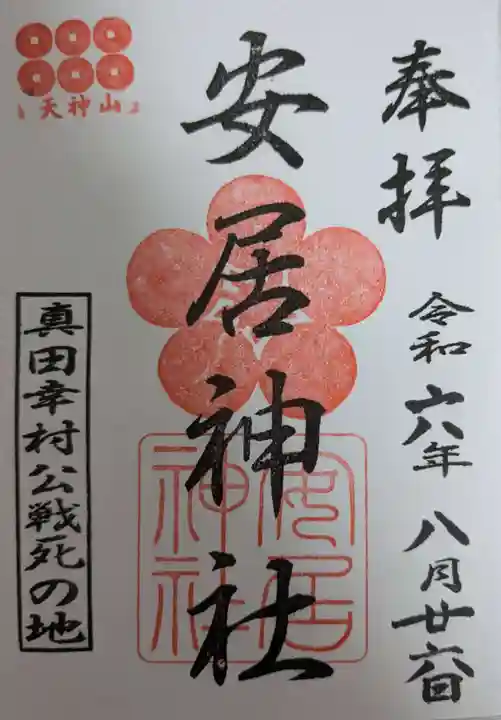 奉拝
令和六年
八月廿六日
安居神社
安居
神社
天神山
真田幸村公戦死の地